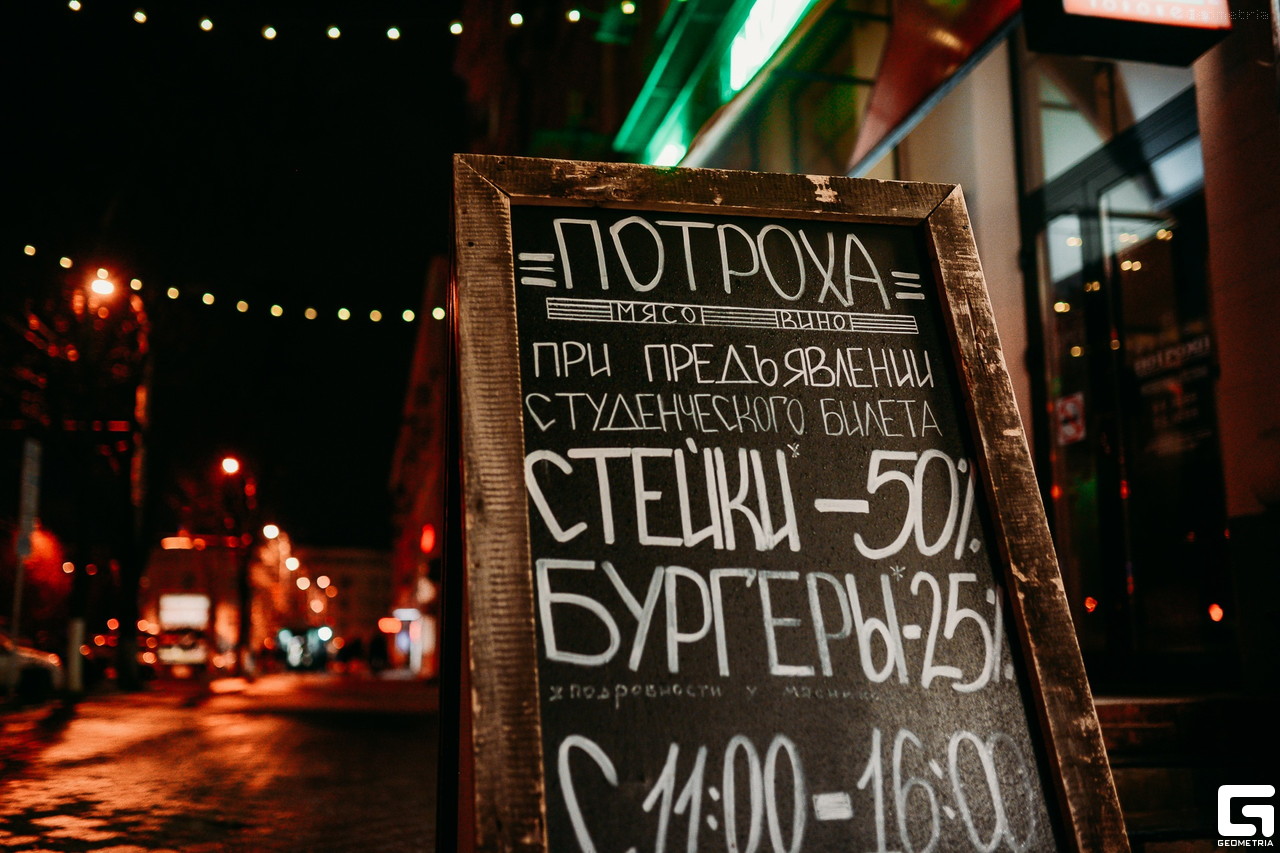 ПОТРОХА
МЯСО ВИНО
ПРИ ПРЕДЪЯВЛЕНИИ
СТУДЕНЧЕСКОГО БИЛЕТА
СТЕЙКИ* -50%
БУРГЕРЫ*-25%
*ПОДРОБНОСТИ У
С 11:00-16:00
GEOMETRIA